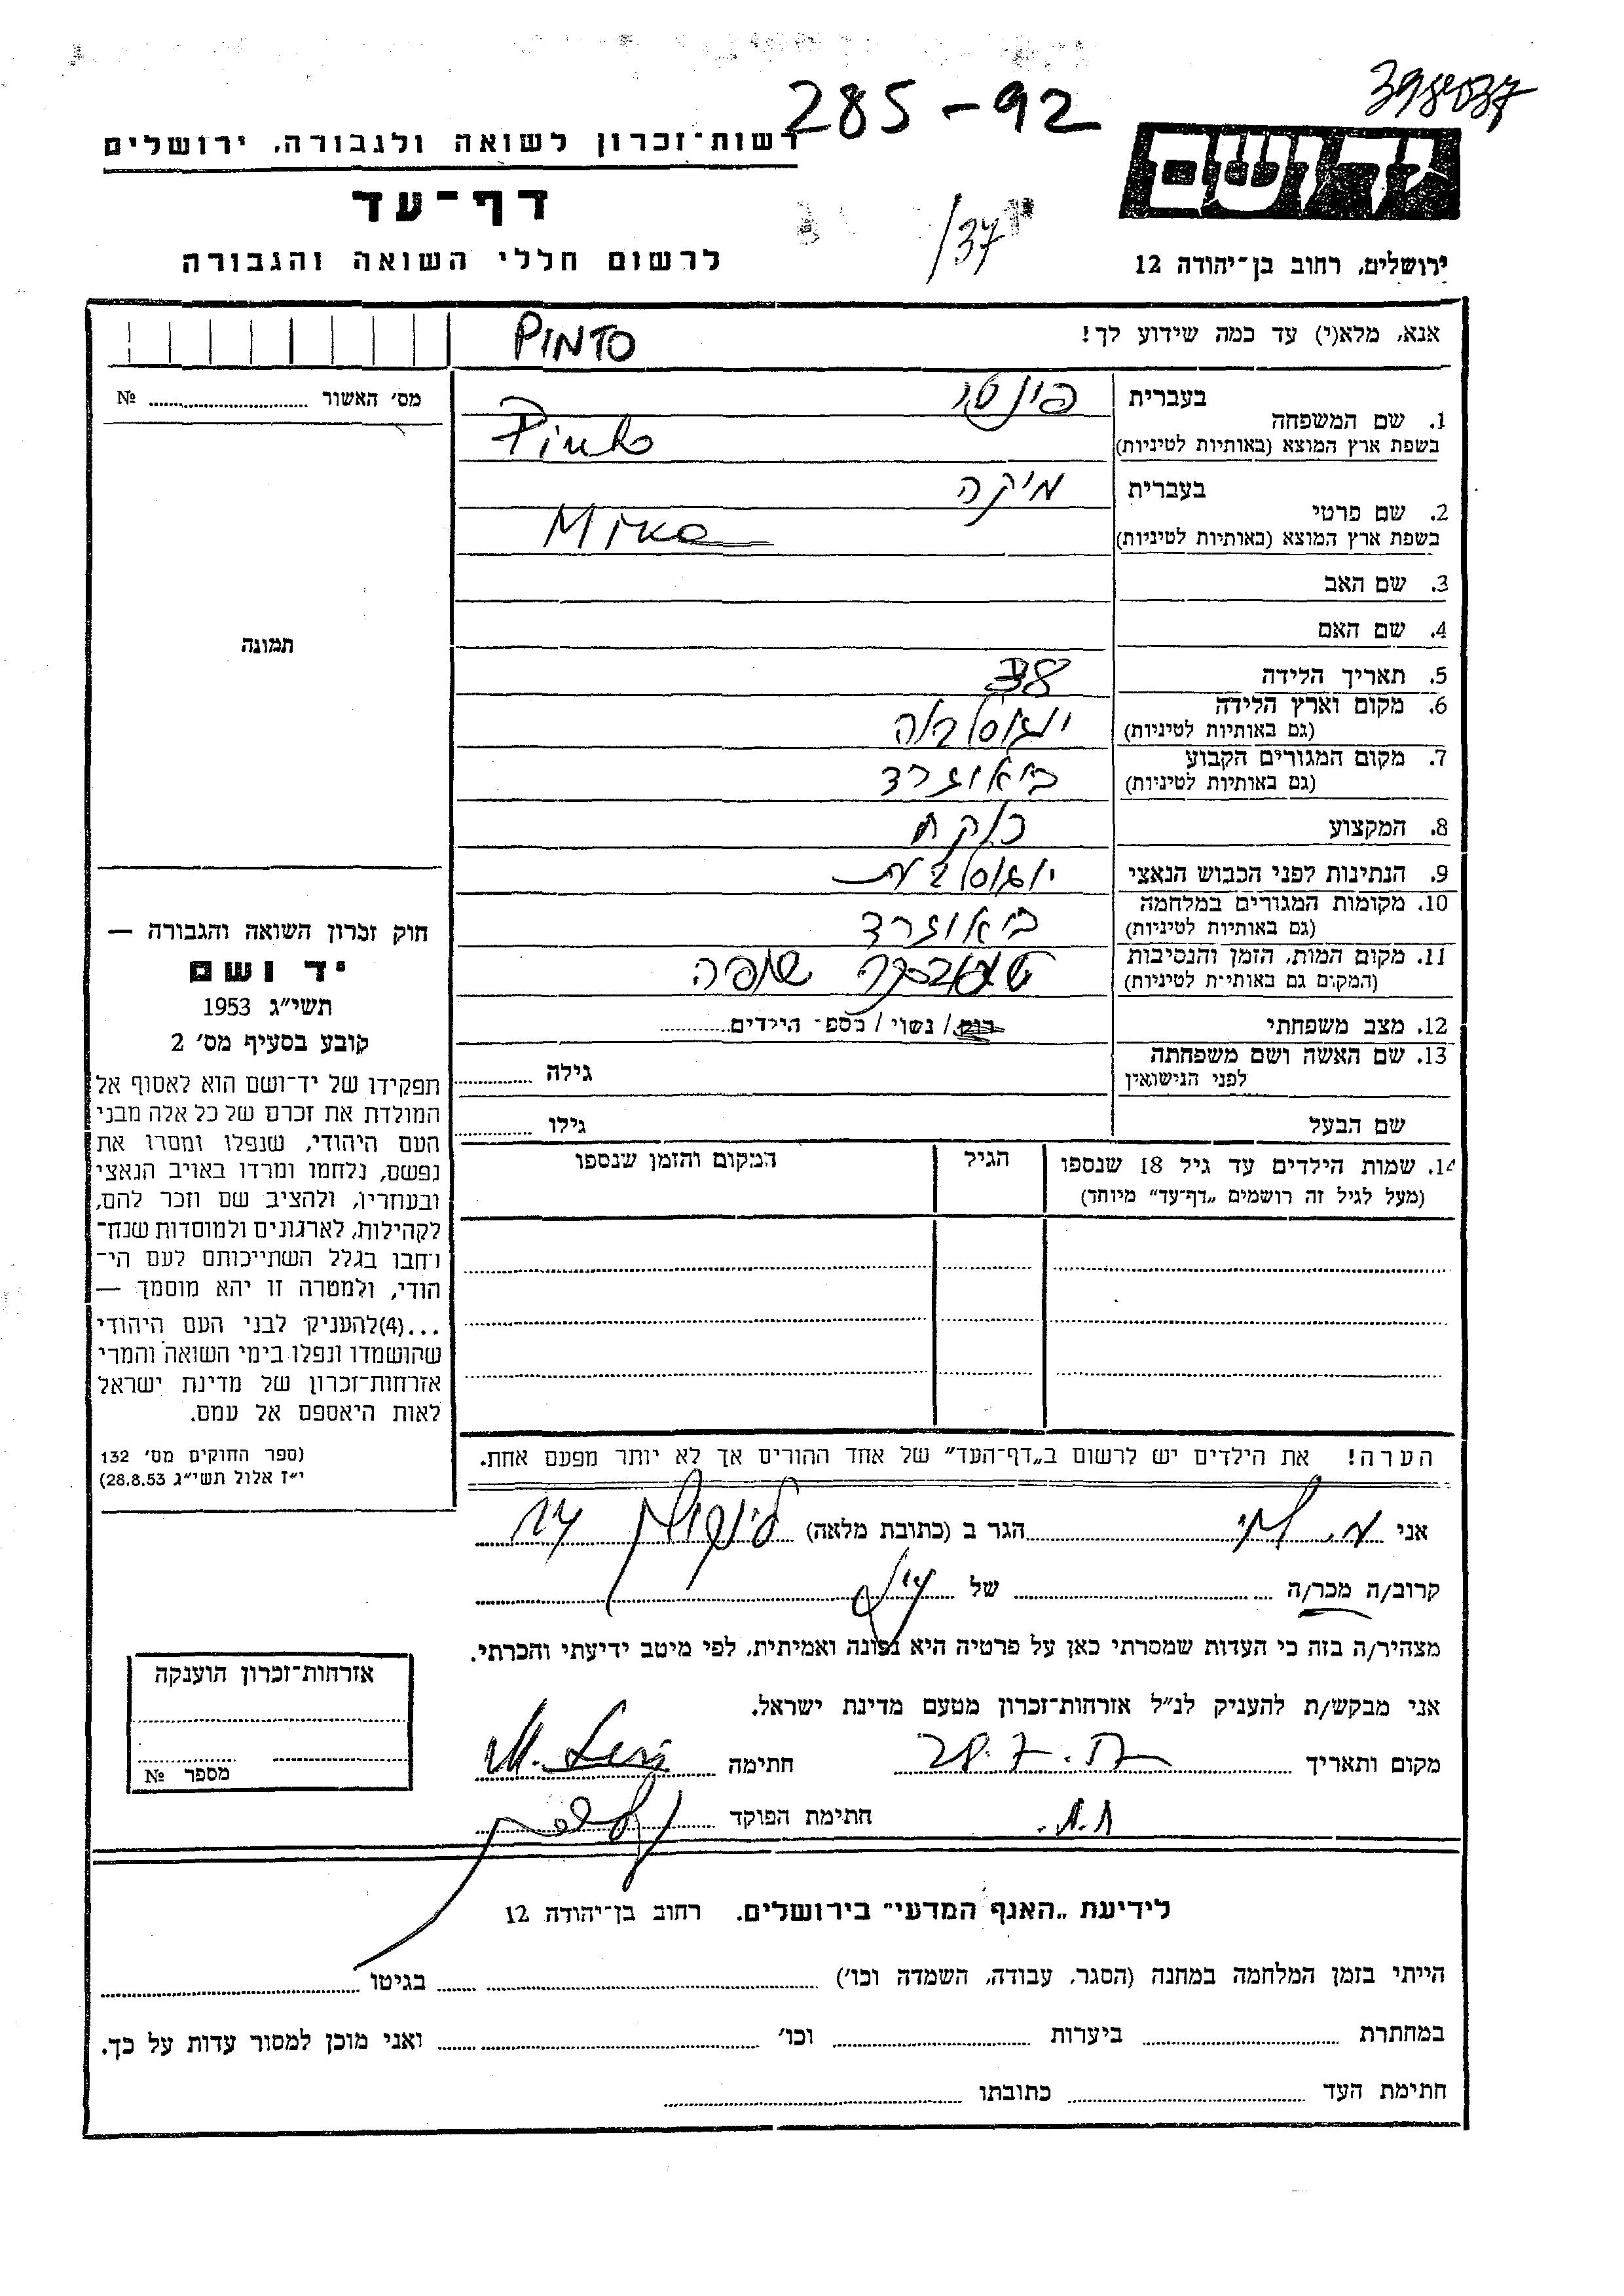 285-92
398037
רשות-זכרון לשואה ולגבורה, ירושלים
יד ושם
דף-עד
/37
לרשום חללי השואה והגבורה
ירושלים, רחוב בן-יהודה 12
אנא, מלא(י) עד כמה שידוע לך!
PINTO
מס׳ האשור № ........
תמונה
1. שם המשפחה
בעברית פינטו
בשפת ארץ המוצא (באותיות לטיניות) Pinto
2. שם פרטי
בעברית מיקה
בשפת ארץ המוצא (באותיות לטיניות)
3. שם האב
4. שם האם
5. תאריך הלידה 38
6. מקום וארץ הלידה
(גם באותיות לטיניות) יוגוסלביה
7. מקום המגורים הקבוע
(גם באותיות לטיניות) ביאוגרד
8. המקצוע
9. הנתינות לפני הכבוש הנאצי יוגוסלבית
10. מקומות המגורים במלחמה
(גם באותיות לטיניות) ביאוגרד
11. מקום המות, הזמן והנסיבות
(המקום גם באותיות לטיניות)
12. מצב משפחתי רווק / נשוי / מספ- הילדים........
13. שם האשה ושם משפחתה
לפני הנישואין גילה ........
שם הבעל גילו ........
14. שמות הילדים עד גיל 18 שנספו הגיל המקום והזמן שנספו
(מעל לגיל זה רושמים „דף-עד” מיוחד)
חוק זכרון השואה והגבורה —
יד ושם
תשי״ג 1953
קובע בסעיף מס׳ 2
תפקידו של יד-ושם הוא לאסוף אל
המולדת את זכרם של כל אלה מבני
העם היהודי, שנפלו ומסרו את
נפשם, נלחמו ומרדו באויב הנאצי
ובעוזריו, ולהציב שם וזכר להם,
לקהילות, לארגונים ולמוסדות שנח-
רבו בגלל השתייכותם לעם הי-
הודי, ולמטרה זו יהא מוסמך —
...(4) להעניק לבני העם היהודי
שהושמדו ונפלו בימי השואה והמרי
אזרחות-זכרון של מדינת ישראל
לאות היאספם אל עמם.
(ספר החוקים מס׳ 132
י״ז אלול תשי״ג 28.8.53)
הערה! את הילדים יש לרשום ב„דף-העד” של אחד ההורים אך לא יותר מפעם אחת.
אני מ. לוי הגר ב (כתובת מלאה)
קרוב/ה מכר/ה ........ של ........
מצהיר/ה בזה כי העדות שמסרתי כאן על פרטיה היא נכונה ואמיתית, לפי מיטב ידיעתי והכרתי.
אני מבקש/ת להעניק לנ״ל אזרחות-זכרון מטעם מדינת ישראל.
מקום ותאריך חתימה M. Levi
חתימת הפוקד
אזרחות-זכרון הוענקה
מספר №
לידיעת „האגף המדעי” בירושלים. רחוב בן-יהודה 12
הייתי בזמן המלחמה במחנה (הסגר, עבודה, השמדה וכו׳) ........ בגיטו ........
במחתרת ........ ביערות ........ וכו׳ ........ ואני מוכן למסור עדות על כך.
חתימת העד ........ כתובתו ........